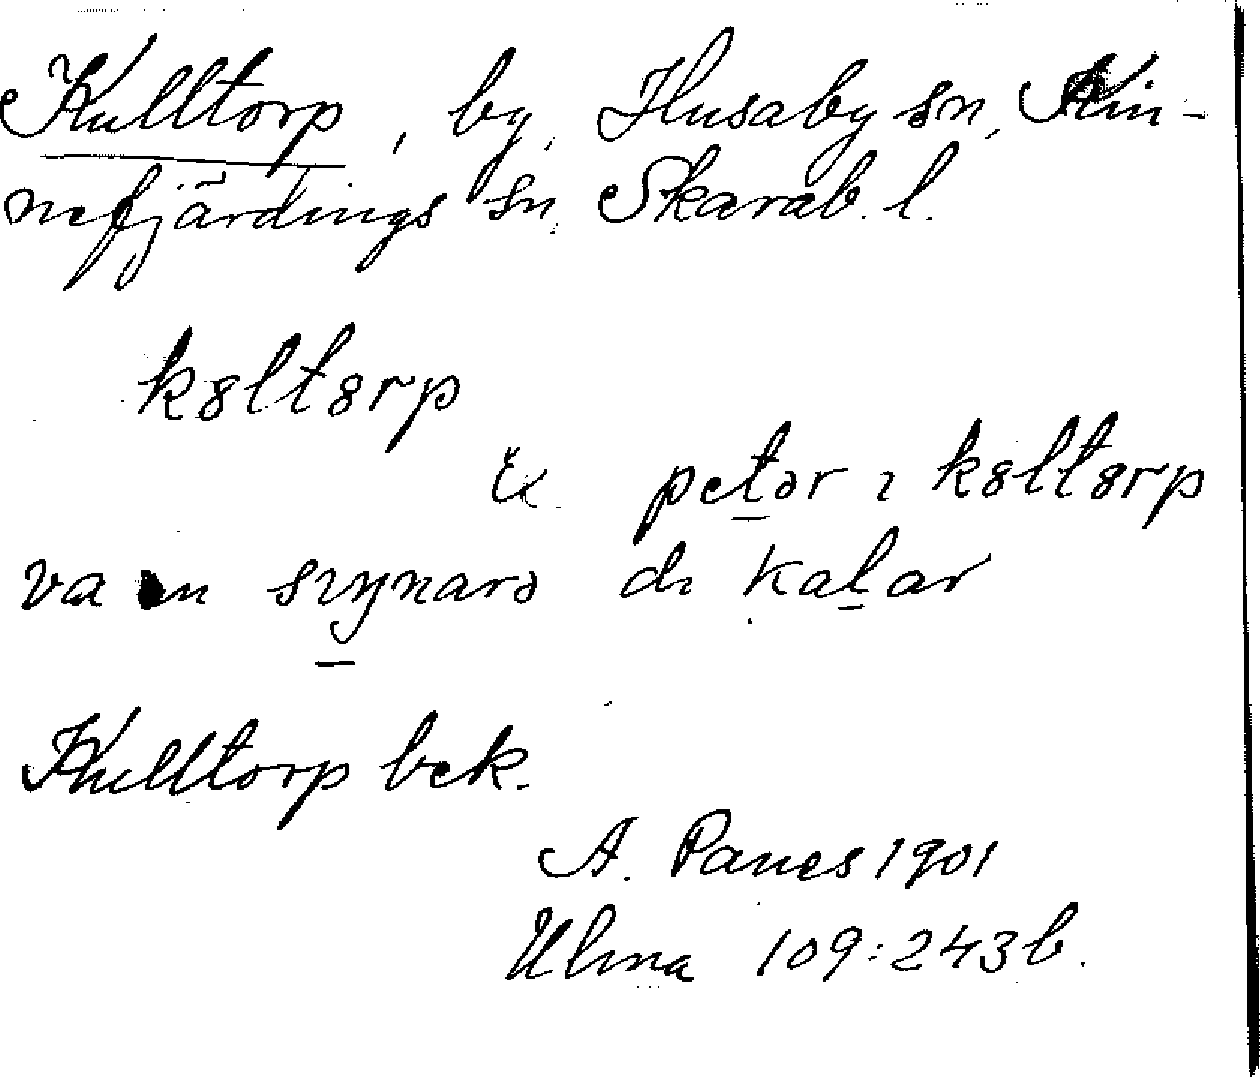 Kulltorp, by, Husaby sn, Kin-
nefjärdings sn. Skarab. l.
k8lt8rp
Ex. petər ı k8lt8rp
va en dı kaḷar
Kulltorp bek.
A. Panes 1901
Ulma 109:243b.